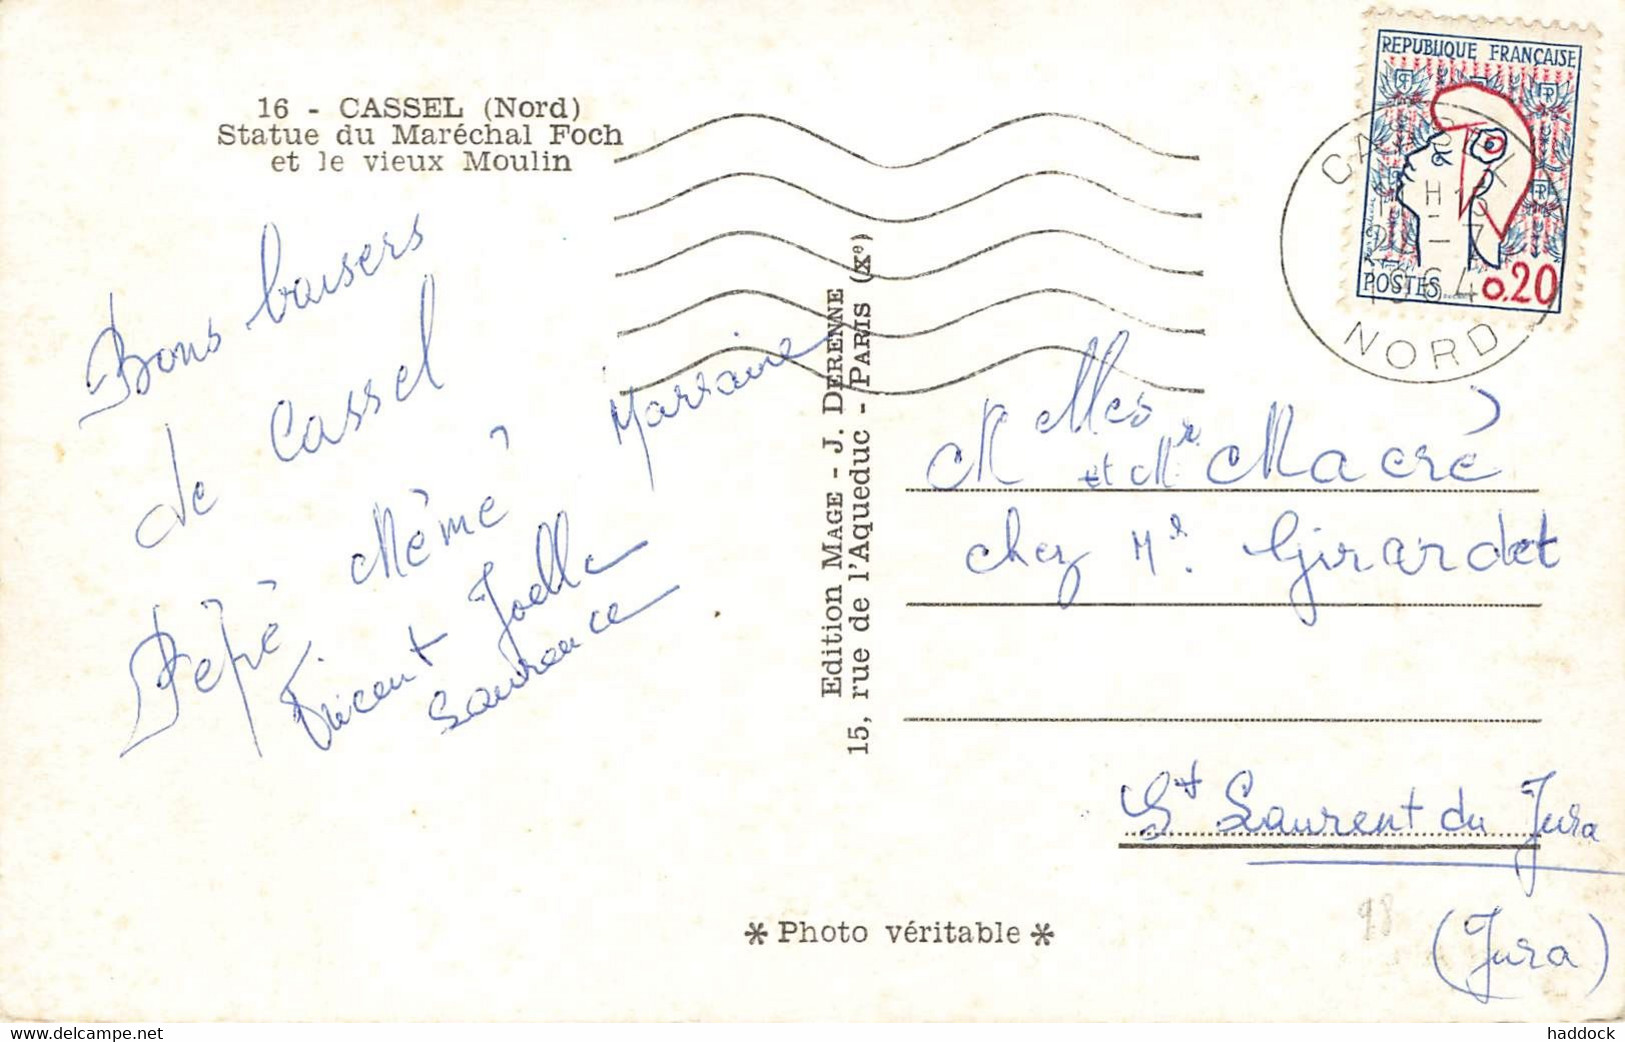 16 - CASSEL (Nord)
Statue du Maréchal Foch
et le vieux Moulin
Bons baisers
de Cassel
Pépé Mémé Marraine
Vincent Joelle
Laurence
Edition MAGE - J. DERENNE
15, rue de l'Aqueduc - PARIS (Xe)
REPUBLIQUE FRANÇAISE
POSTES 0.20
NORD
Melles
M et Mr Macré
chez Mr Girardet
St Laurent du Jura
(Jura)
98
* Photo véritable *
delcampe.net
haddock